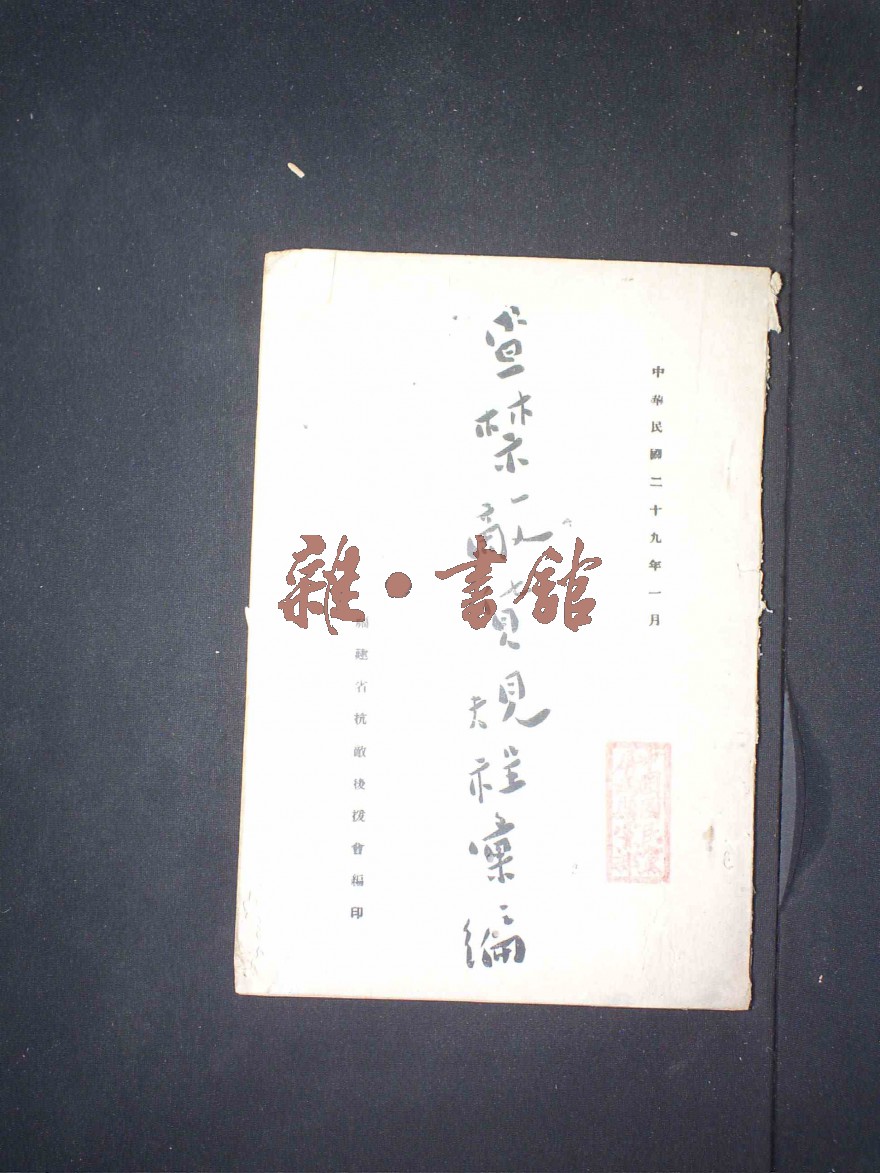 中華民國二十九年一月
查禁敵貨規程彙編
福建省抗敵後援會編印
雜·書館